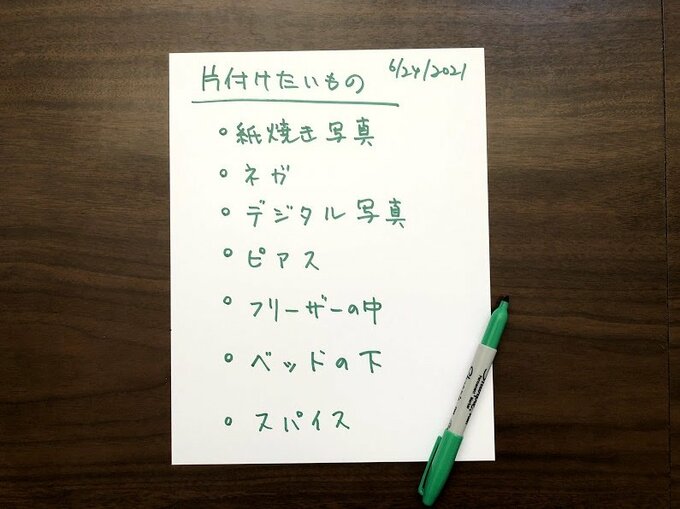 片付けたいもの 6/24/2021
○ 紙焼き写真
○ ネガ
○ デジタル写真
○ ピアス
○ フリーザーの中
○ ベッドの下
○ スパイス
Sharpie